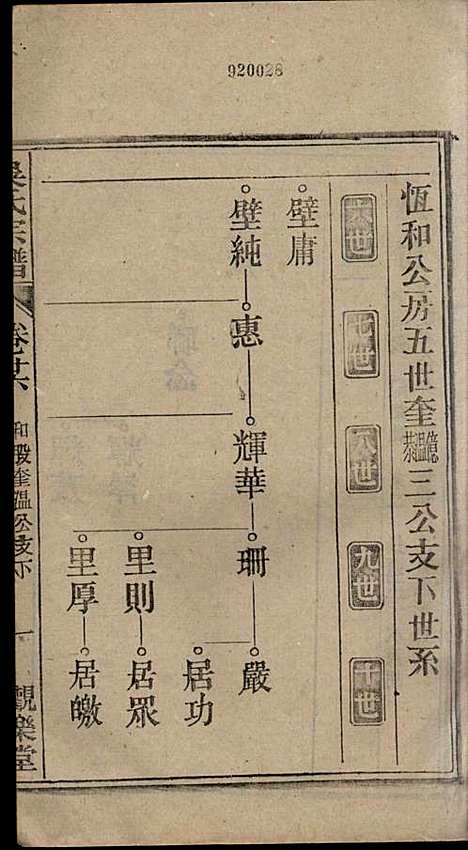 920028
恆和公房五世奎三公支下世系
六世
七世
八世
九世
十世
璧庸
璧純
惠
輝華
珊
嚴
居功
里則
居眾
里厚
居皦
吳氏宗譜
卷廿六
和股奎溫公支下
一
觀樂堂